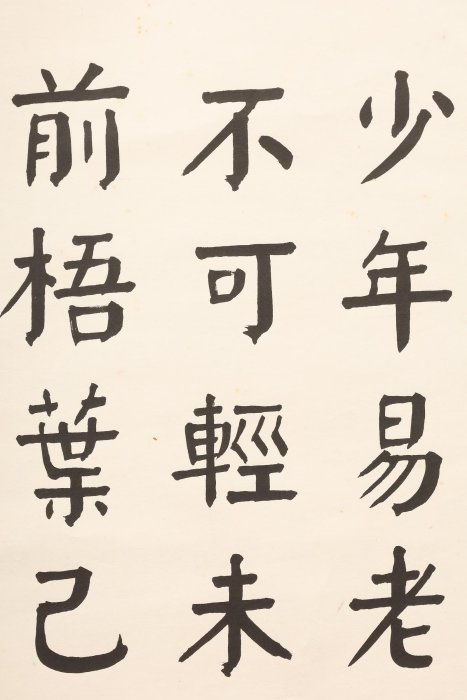 少年易老
不可輕未
前梧葉己